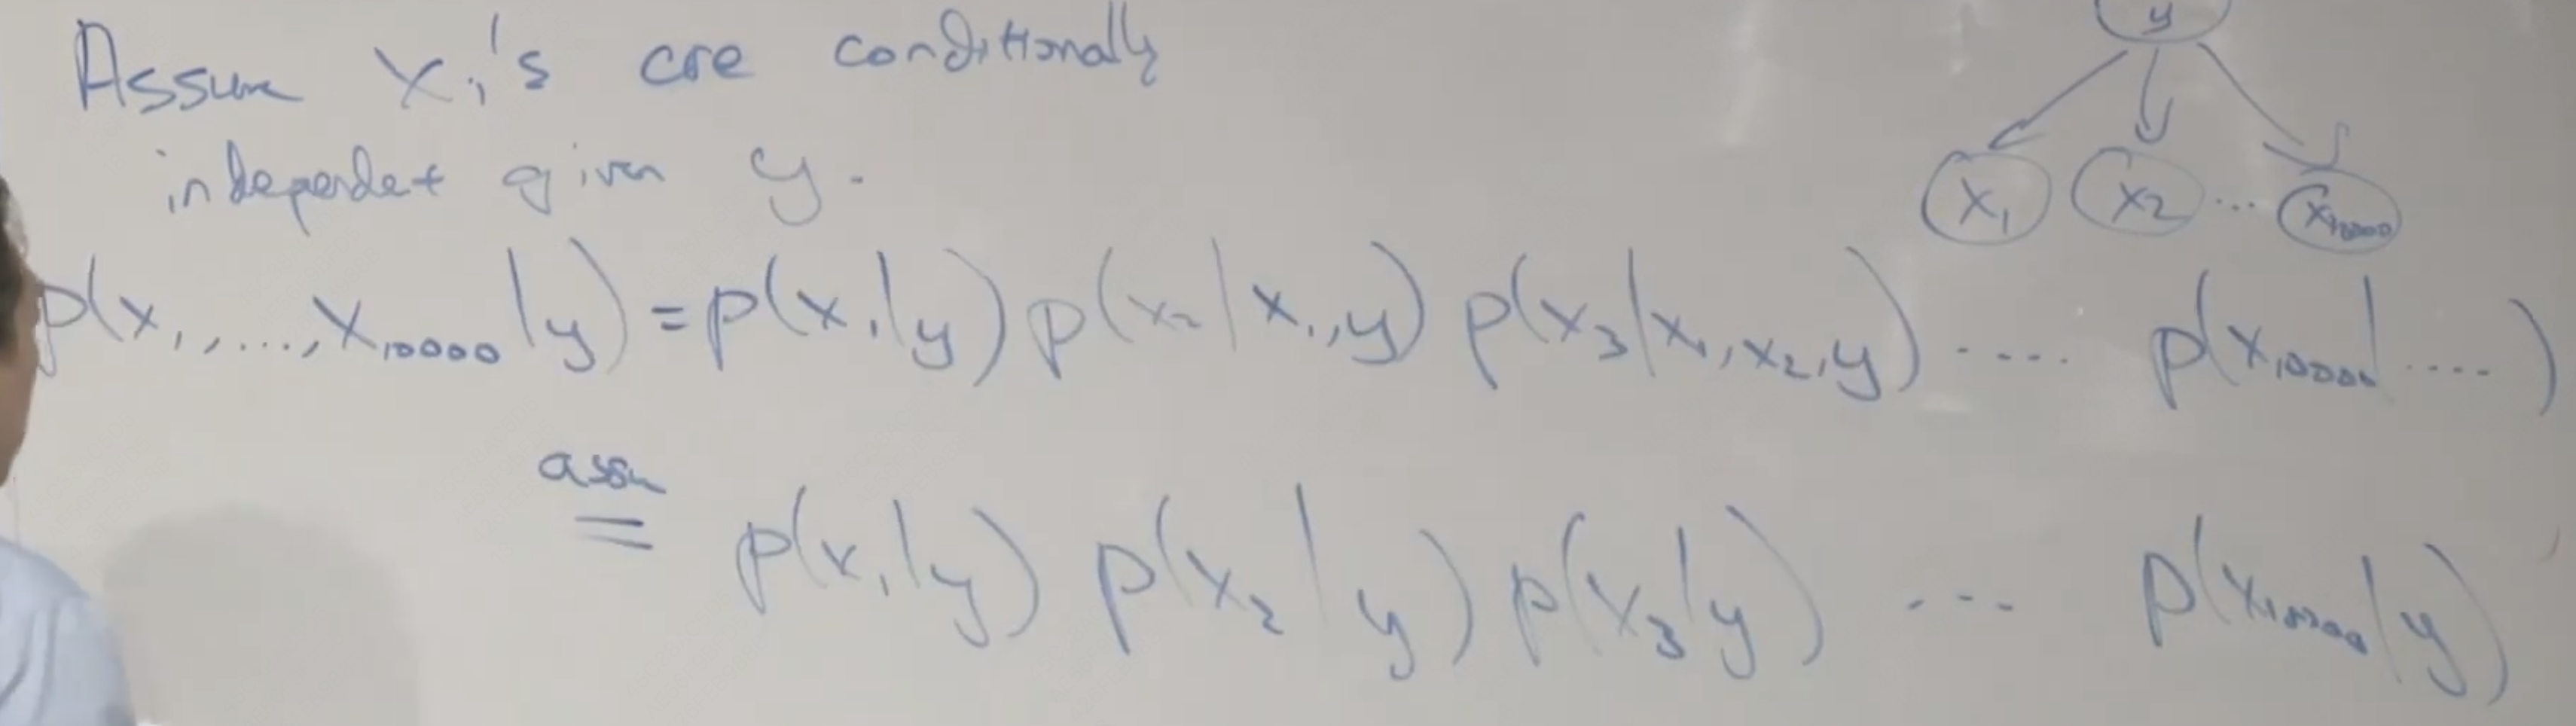 Assume xᵢ's are conditionally
independent given y.
y
x₁ x₂ ... x₁₀₀₀₀
p(x₁,...,x₁₀₀₀₀|y) = p(x₁|y) p(x₂|x₁,y) p(x₃|x₁,x₂,y) .... p(x₁₀₀₀₀|....)
assu
= p(x₁|y) p(x₂|y) p(x₃|y) ... p(x₁₀₀₀₀|y)